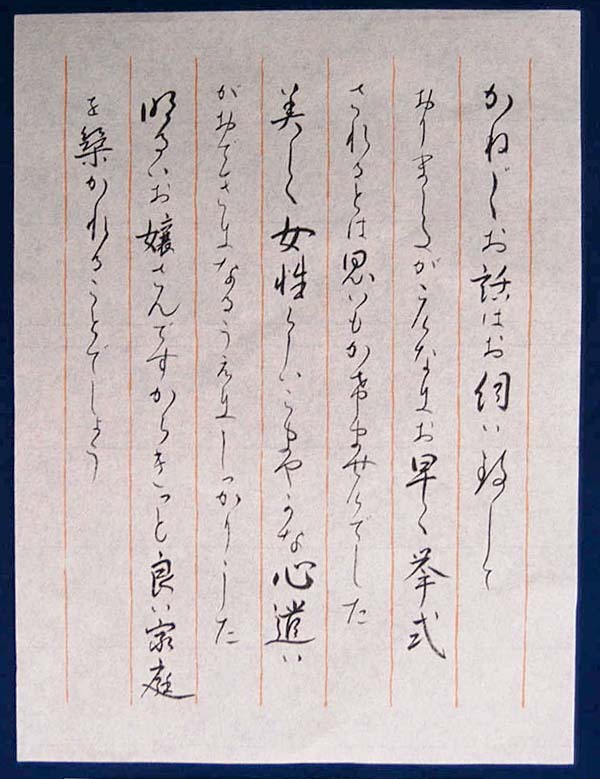 かねがねお話はお伺い致して
おりましたがこんなにお早く挙式
されるとは思いもかけませんでした
美しく女性らしいこまやかな心遣い
がおできになるうえにしっかりした
明るいお嬢さんですからきっと良い家庭
を築かれることでしょう